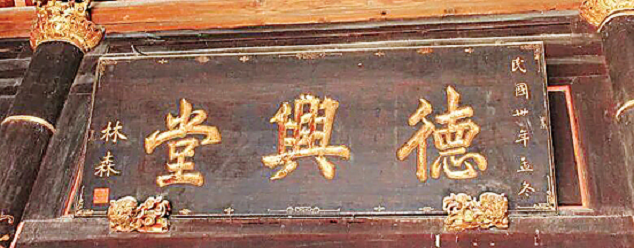 民國卅年孟冬
德興堂
林森